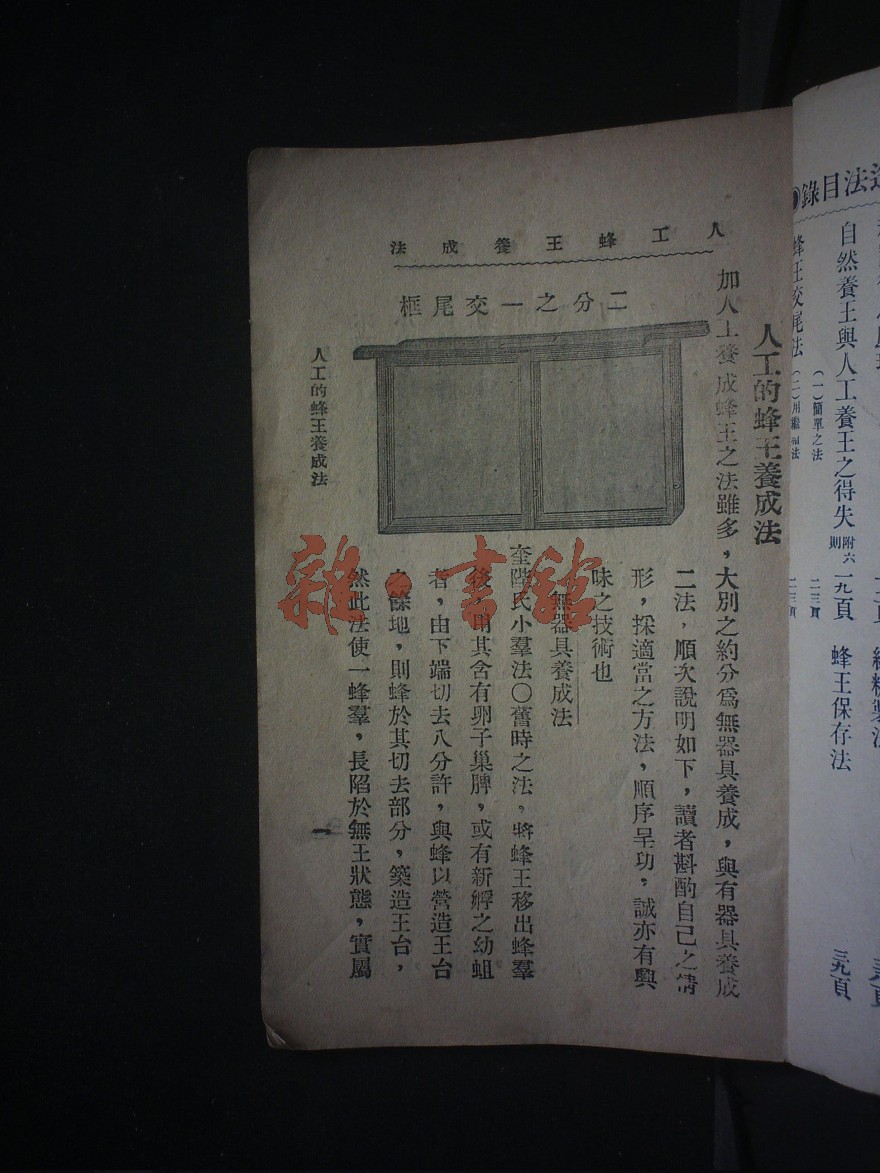 造法目錄
自然養王與人工養王之得失 附六則 一九頁
蜂王保存法 三九頁
蜂王交尾法
(一)簡單之法 二三頁
人工蜂王養成法
人工的蜂王養成法
加人工養成蜂王之法雖多，大別之約分爲無器具養成，與有器具養成
二法，順次說明如下，讀者斟酌自己之情
形，採適當之方法，順序呈功，誠亦有興
味之技術也
無器具養成法
奎陞氏小羣法〇舊時之法，將蜂王移出蜂羣
後，用其含有卵子巢牌，或有新孵之幼蛆
者，由下端切去八分許，與蜂以營造王台
之餘地，則蜂於其切去部分，築造王台，
然此法使一蜂羣，長陷於無王狀態，實屬
二分之一交尾框
人工的蜂王養成法
一
雜·書館